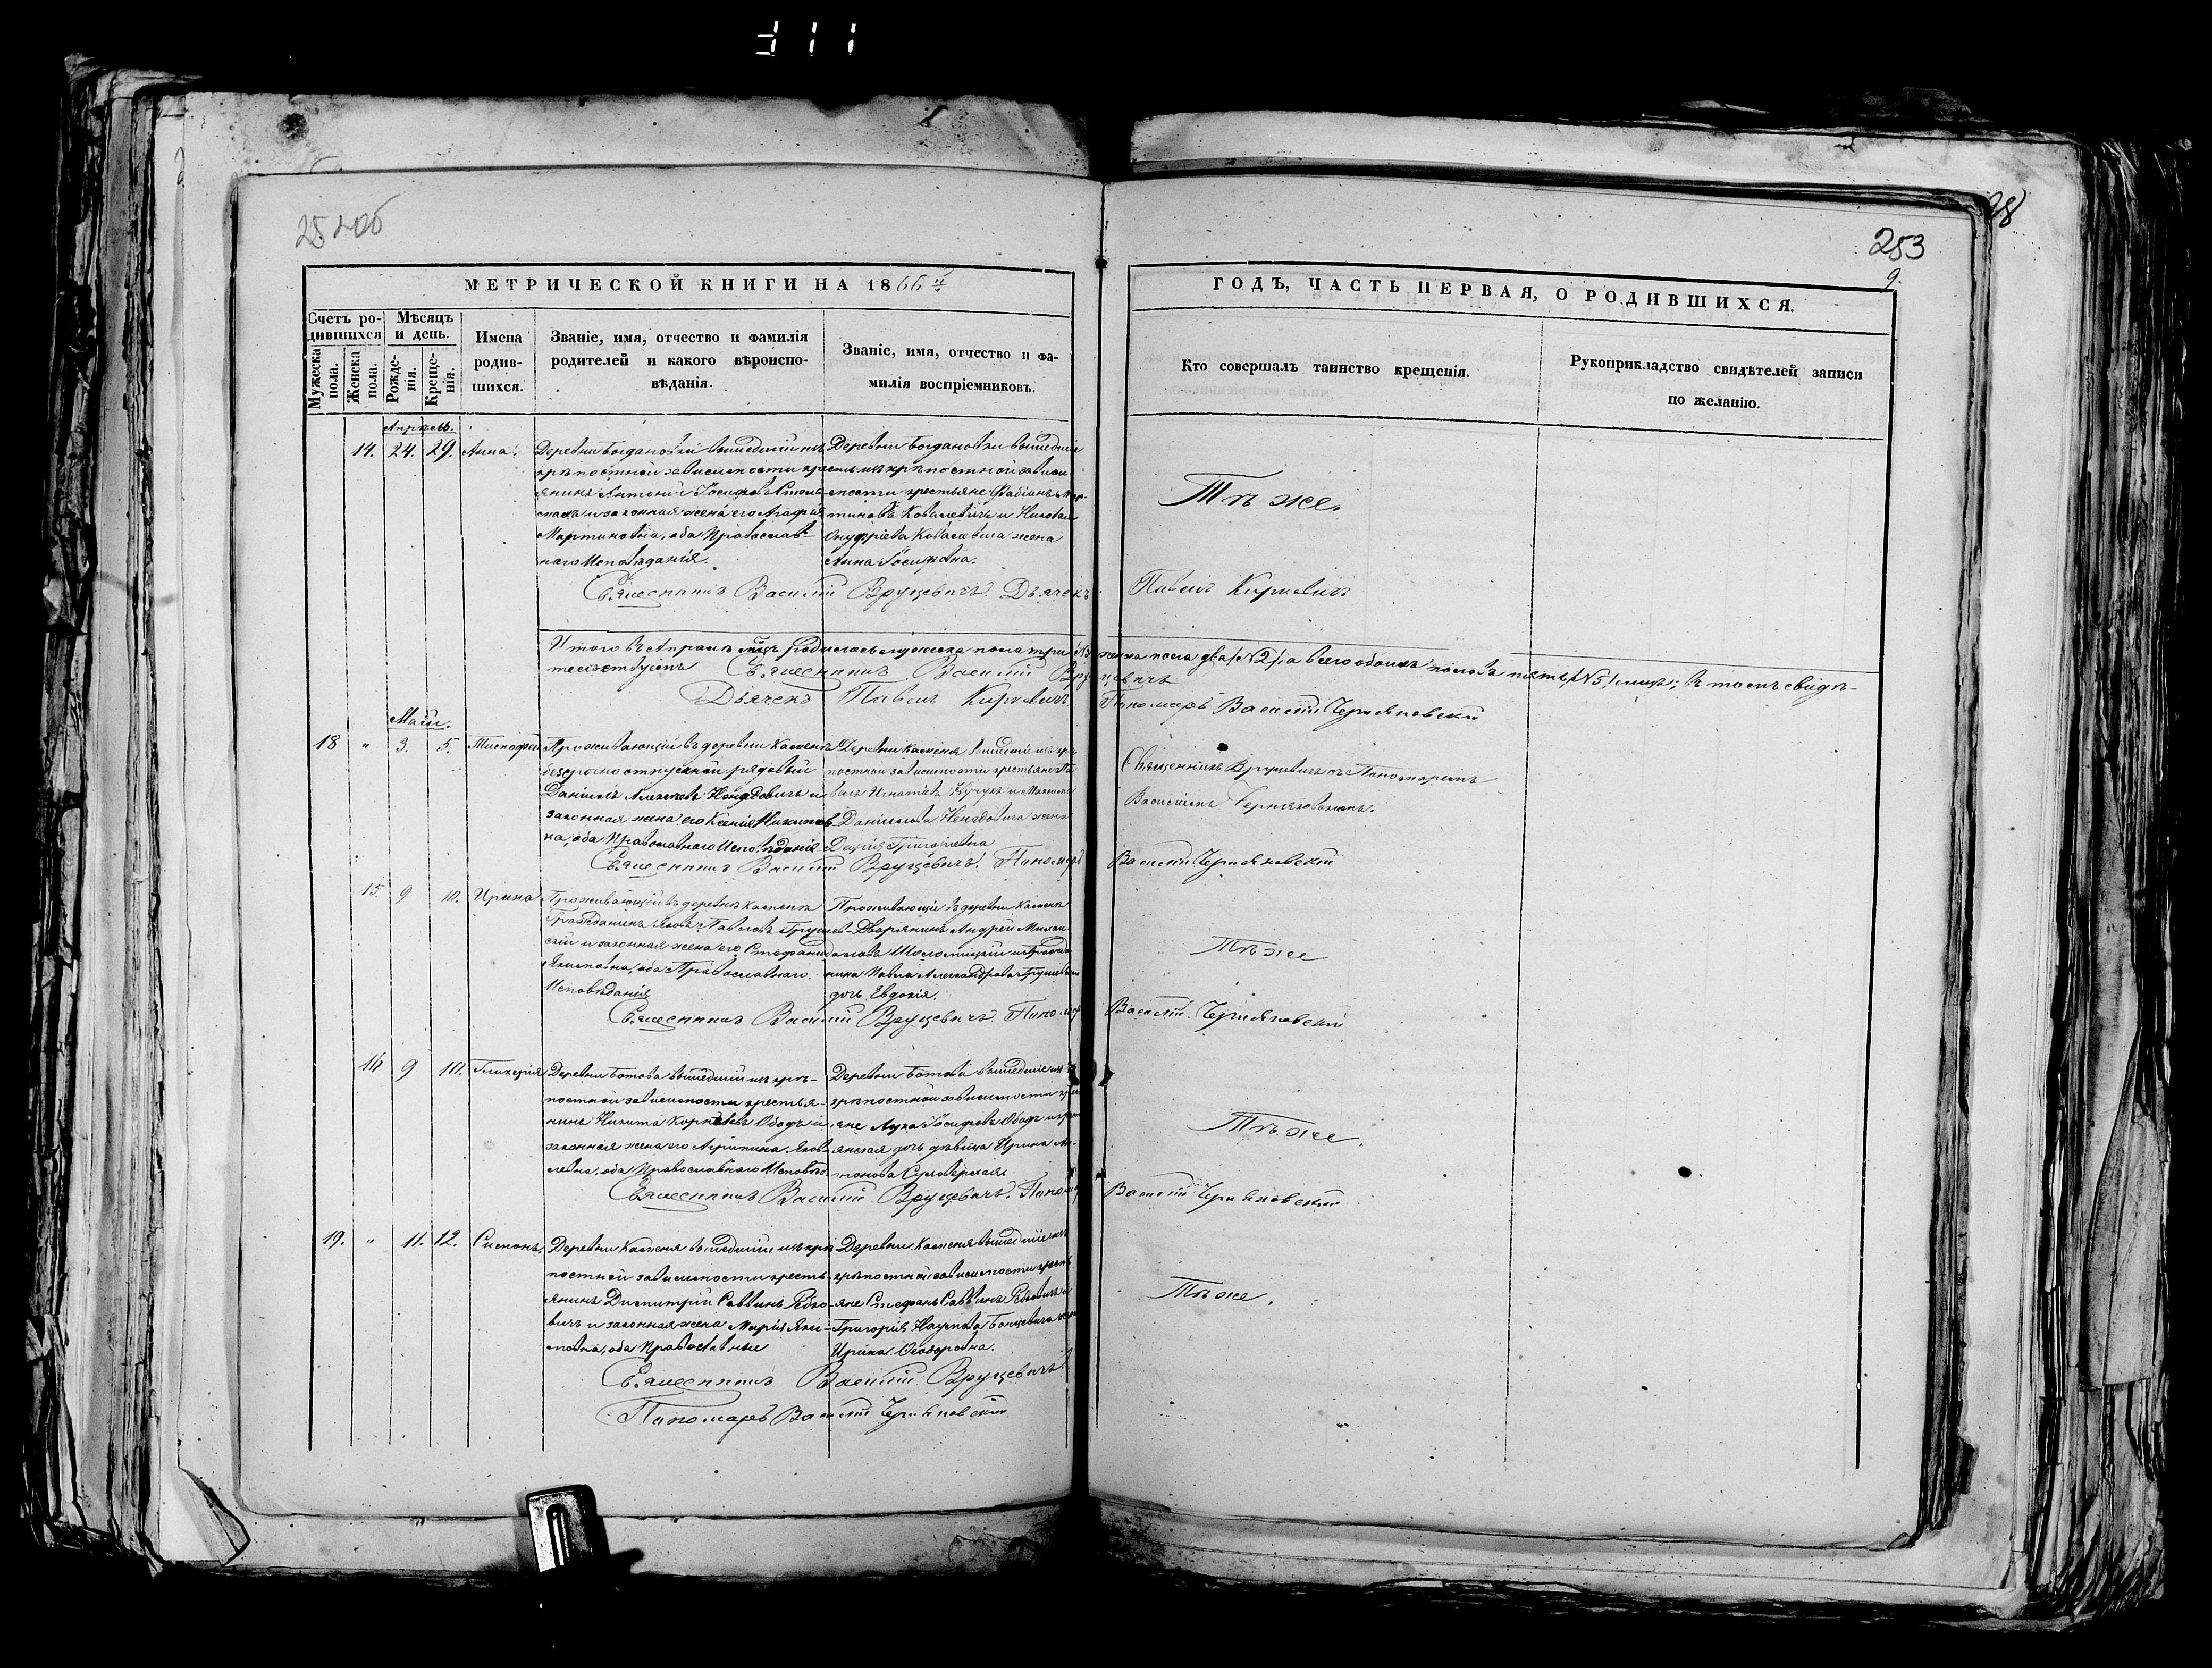 252об
28
253
9.
МЕТРИЧЕСКОЙ КНИГИ НА 1866 й
ГОДЪ, ЧАСТЬ ПЕРВАЯ, О РОДИВШИХСЯ.
Счетъ родившихся
Мужеска пола.
Женска пола.
Мѣсяцъ и день.
Рожденія.
Крещенія.
Имена родившихся.
Званіе, имя, отчество и фамилія
родителей и какого вѣроиспо-
вѣданія.
Званіе, имя, отчество и фа-
милія воспріемниковъ.
Кто совершалъ таинство крещенія.
Рукоприкладство свидѣтелей записи
по желанію.
Апрѣль.
14. 24. 29. Анна.
Деревни Богдановки вышедшій изъ
крѣпостной зависимости кресть
янинъ Антоній Іосифовъ
и законная жена его Агафія
Мартиновна, оба Православ-
наго Исповѣданія.
Деревни Богдановки вышедшіе
изъ крѣпостной зависи
мости крестьяне Фабіанъ Мар-
тиновъ Ковалевичъ и Николая
Онуфріева Ковалевича жена
Анна Іосифовна.
Тѣ же.
Священникъ Василій Вруцевичъ. Дьячекъ Павелъ Киркевичъ
Итого въ Апрѣлѣ мцѣ родилось мужеска пола три женска пола два /№2/, а всего обоихъ половъ пять /№5/ лицъ; въ томъ свидѣ-
тельствуемъ Священникъ Василій Вруцевичъ
Дьячекъ Павелъ Киркевичъ Пономарь Василій Черняковскій
Май.
18 " 3. 5.
Проживающій въ деревни Камень
безсрочноотпускной рядовый
Даніилъ Алексѣевъ Ненадовичъ и
законная жена его Ксенія Никитов-
на, оба Православнаго Исповѣданія
Деревни Каменя вышедшіе изъ крѣ
постной зависимости крестьяне Па
велъ Игнатіевъ Кучукъ и Максима
Даніилова Ненадовича жена
Дарія Григоріевна
Священникъ Вруцевичъ съ Пономаремъ
Василіемъ Черняковскимъ.
Священникъ Василій Вруцевичъ. Пономарь Василій Черняковскій
15. 9 10. Ирина
Проживающій въ деревнѣ Каменѣ
Гражданинъ Яковъ Павловъ Грушев-
скій и законная жена его Стефанида
Якимовна, оба Православнаго
Исповѣданія
Проживающіе въ деревни Каменѣ
Дворянинъ Андрей Михаи-
ловъ Шоломицкій и Гражда
нина Павла Александрова Грушевскаго
дочь Евдокія.
Тѣ же
Священникъ Василій Вруцевичъ. Пономарь Василій Черняковскій
16 9 10. Гликерія
Деревни Ботова вышедшій изъ крѣ-
постной зависимости крестья-
нинъ Никита Корнѣевъ Ободъ и
законная жена его Агрипина Яков-
левна, оба Православнаго Исповѣд
Деревни Ботова вышедшіе изъ
крѣпостной зависимости крест
яне Лука Іосифовъ Ободъ и крест
янская дочь дѣвица Ирина Ан-
тонова
Тѣ же.
Священникъ Василій Вруцевичъ. Пономарь Василій Черняковскій
19. " 11. 12. Симонъ.
Деревни Каменя вышедшій изъ крѣ
постной зависимости кресть-
янинъ Димитрій Саввинъ Рѣдко-
вичъ и законная жена Марія Яки-
мовна, оба Православные
Деревни Каменя вышедшіе изъ
крѣпостной зависимости крест
яне Стефанъ Саввинъ Рѣдковичъ и
Григорія Наумова Банцевича жена
Ирина Ѳеодоровна.
Тѣ же.
Священникъ Василій Вруцевичъ
Пономарь Василій Черняковскій